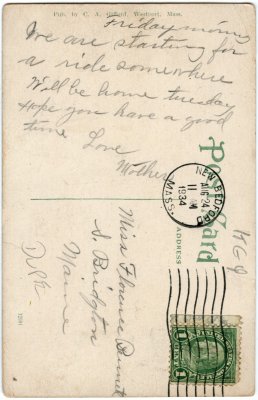 Pub. by C. A. Gifford, Westport, Mass.
Friday morning
We are starting for
a ride somewhere
Will be home tuesday
Hope you have a good
time Love
Mother
Post Card
ADDRESS
NEW BEDFORD
AUG 24
11
1934
MASS.
Miss Florence Bennett
S. Bridgton
Maine
1 CENT 1